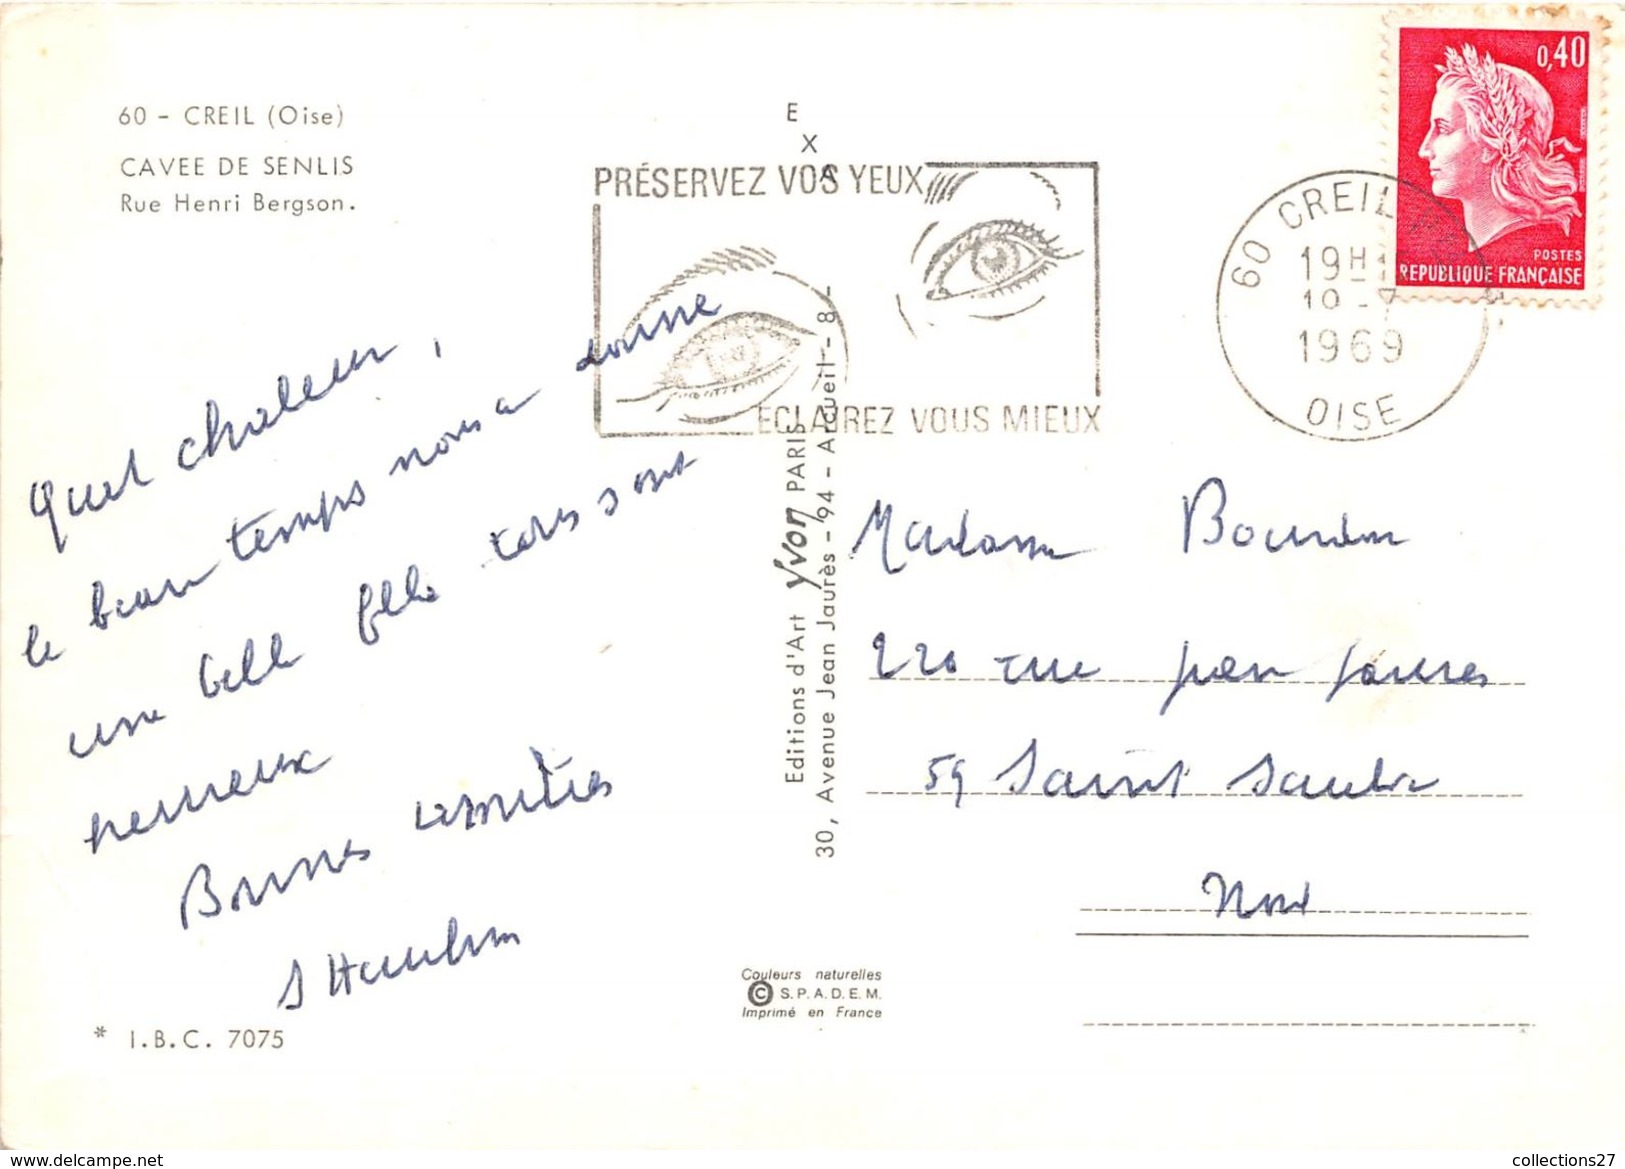 60 - CREIL (Oise)
CAVEE DE SENLIS
Rue Henri Bergson.
E
X
A
PRÉSERVEZ VOS YEUX
ECLAIREZ VOUS MIEUX
60 CREIL
19H
10-7
1969
OISE
0,40
POSTES
REPUBLIQUE FRANÇAISE
Quel chaleur,
le beau temps nous a donné
une belle fille tous sont
heureux
Bonnes amitiés
Editions d'Art Yvon PARIS
30, Avenue Jean Jaurès - 94 - Arcueil - 8 -
Madame Bourdon
220 rue jean jaures
59 Saint Saulve
Nord
Couleurs naturelles
© S.P.A.D.E.M.
Imprimé en France
* I.B.C. 7075
https://www.delcampe.net
collections27